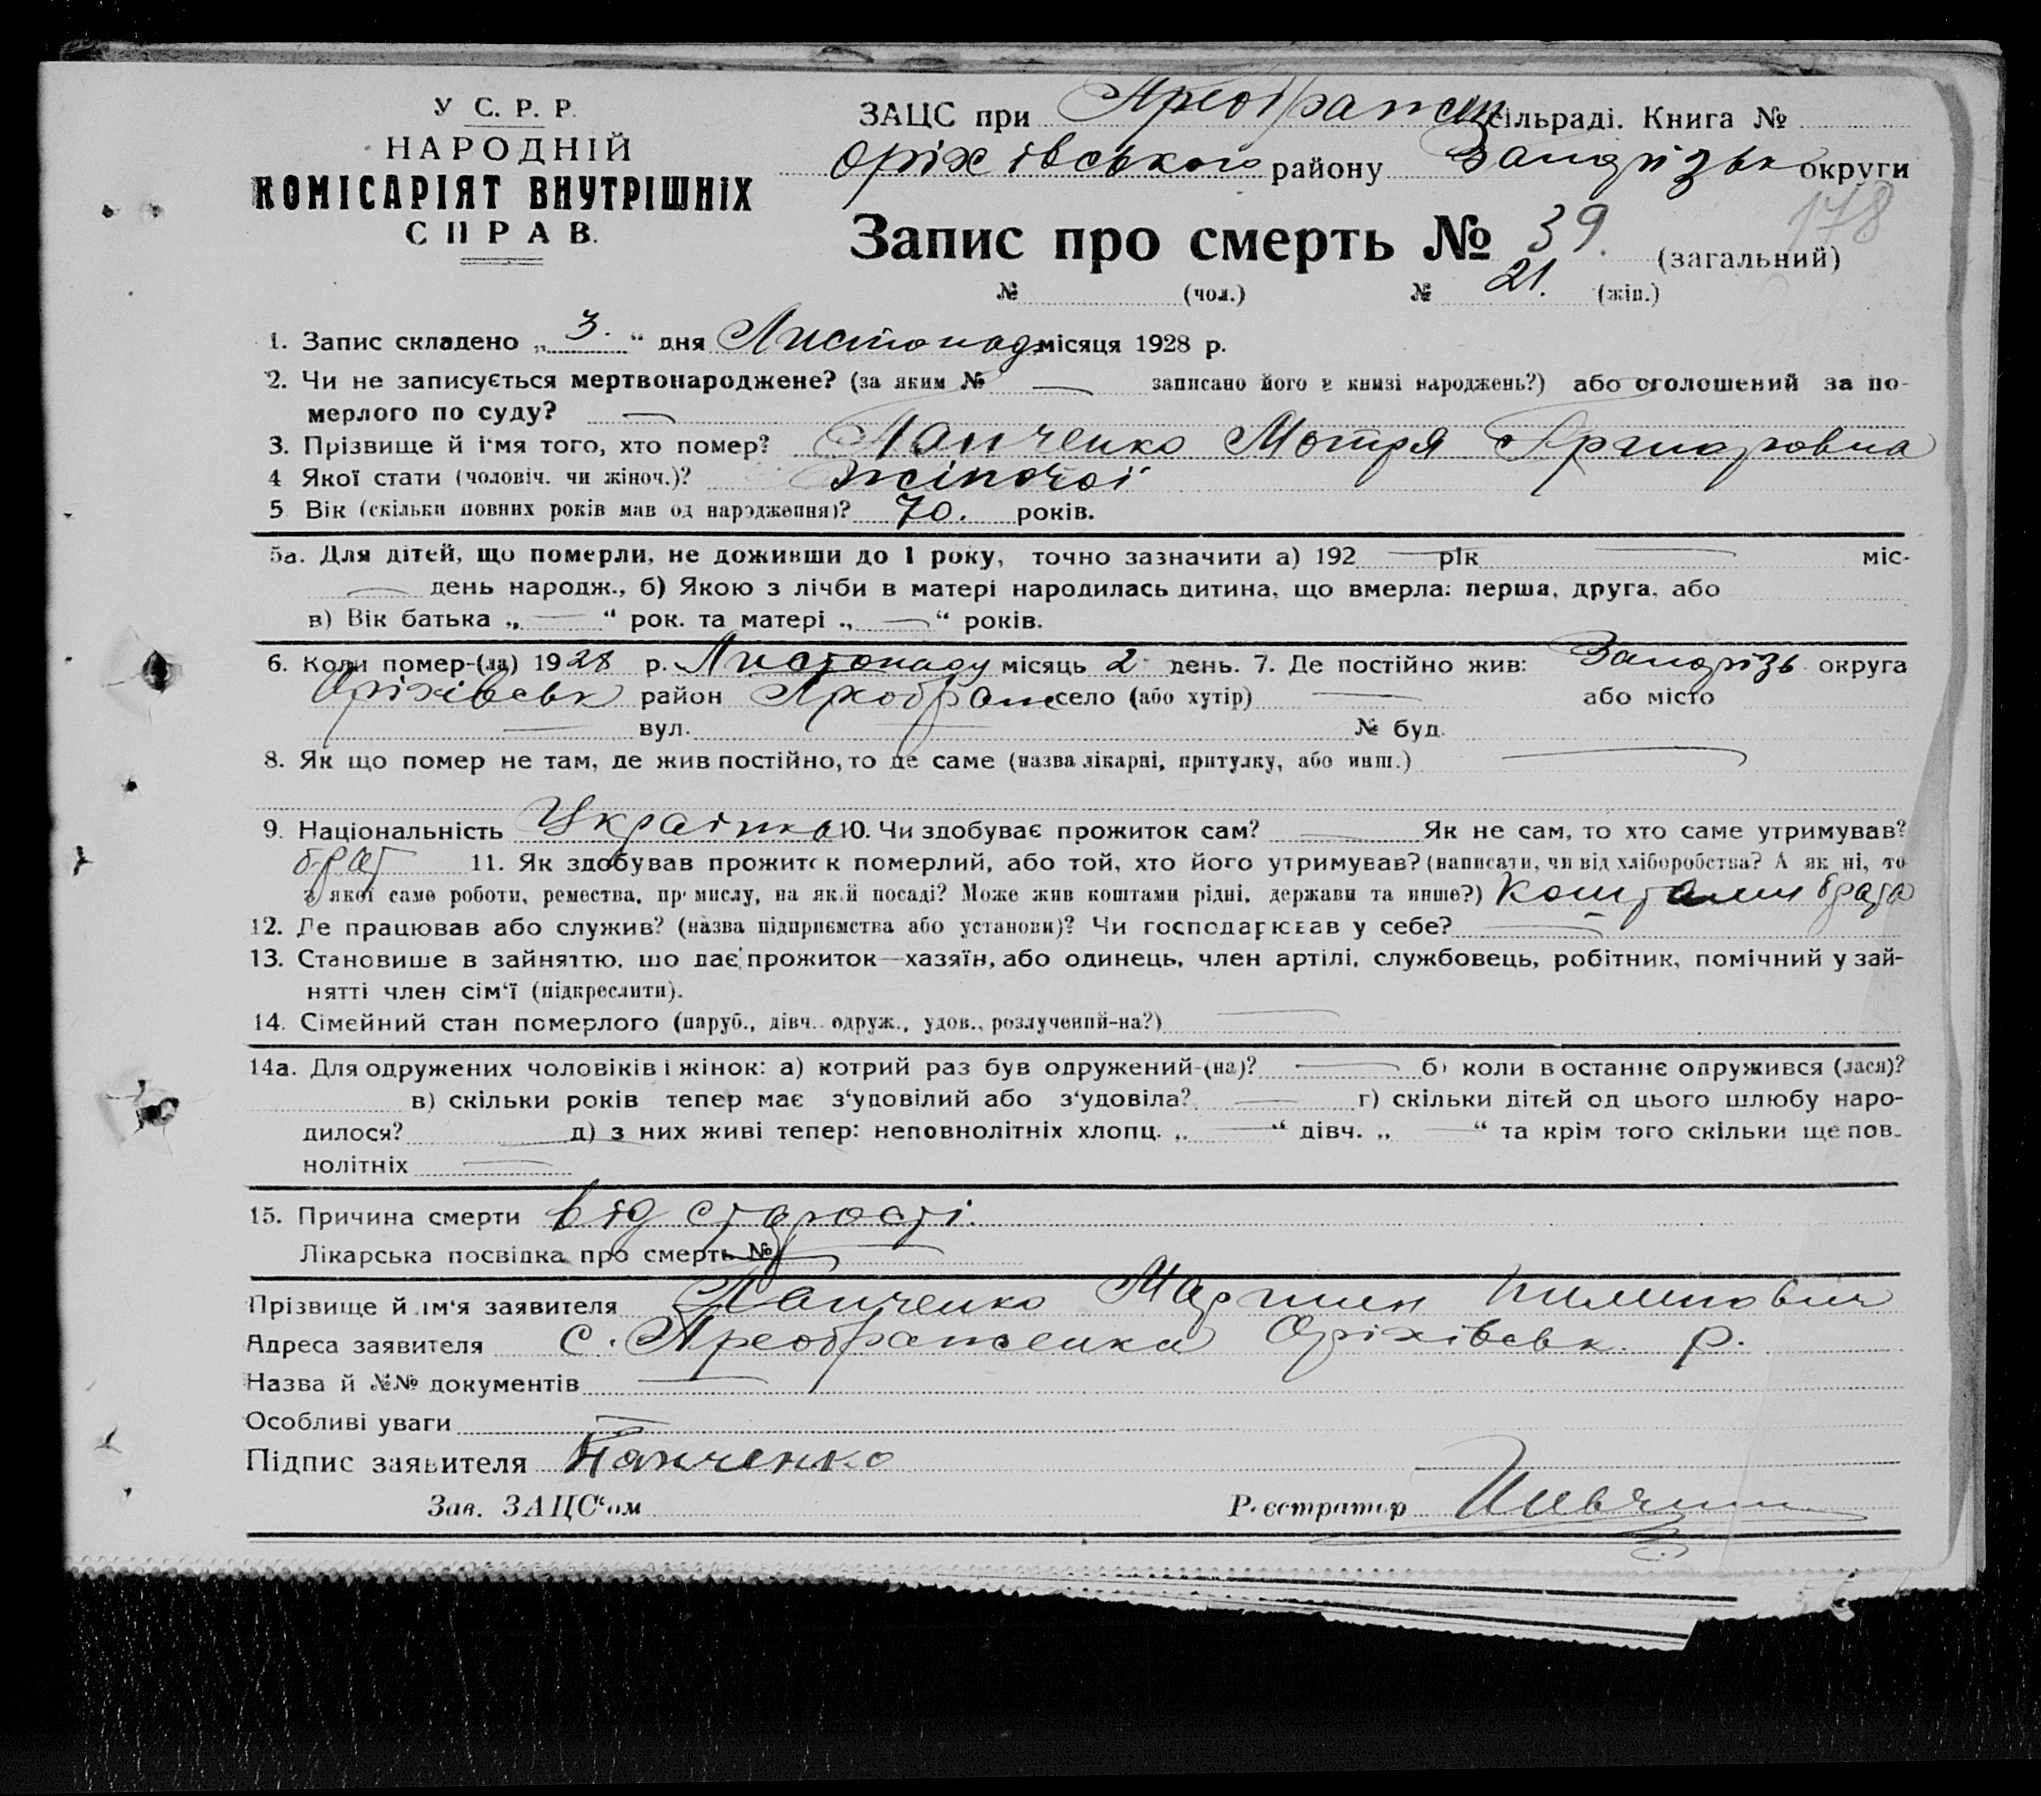 У С. Р. Р.
НАРОДНІЙ
КОМІСАРІЯТ ВНУТРІШНІХ
СПРАВ.
ЗАЦС при сільраді. Книга №
Оріхівського району Запорізьк округи
178
Запис про смерть № 39. (загальний)
№ (чол.) № 21. (жін.)
1. Запис складено „ 3. “ дня Листопад місяця 1928 р.
2. Чи не записується мертвонароджене? (за яким № — записано його в книзі народжень?) або оголошений за по-
мерлого по суду? —
3. Прізвище й ім'я того, хто помер? Панченко Мотря
4 Якої статі (чоловіч. чи жіноч.)? жіночої
5 Вік (скільки повних років мав од народження)? 70. років.
5а. Для дітей, що померли, не доживши до 1 року, точно зазначити а) 192 — рік — міс-
— день народж., б) Якою з лічби в матері народилась дитина, що вмерла: перша, друга, або
в) Вік батька „ — “ рок. та матері „ — “ років.
6. Коли помер-(ла) 1928 р. Листопаду місяць 2 день. 7. Де постійно жив: Запоріз округа
Оріхівськ район село (або хутір) — або місто
— вул. — № буд.
8. Як що помер не там, де жив постійно, то де саме (назва лікарні, притулку, або инш.) —
9. Національність Українка 10. Чи здобуває прожиток сам? — Як не сам, то хто саме утримував?
брат 11. Як здобував прожиток померлий, або той, хто його утримував? (написати, чи від хліборобства? А як ні, то
з якої саме роботи, ремества, промислу, на якій посаді? Може жив коштами рідні, держави та инше?) Коштами брата
12. Де працював або служив? (назва підприємства або установи)? Чи господарював у себе? —
13. Становище в зайняттю, що дає прожиток—хазяїн, або одинець, член артілі, службовець, робітник, помічний у зай-
нятті член сім'ї (підкреслити).
14. Сімейний стан померлого (паруб., дівч. одруж., удов., розлучений-на?) —
14а. Для одружених чоловіків і жінок: а) котрий раз був одружений-(на)? — б) коли востаннє одружився (лася)?
в) скільки років тепер має з'удовілий або з'удовіла? — г) скільки дітей од цього шлюбу наро-
дилося? — д) з них живі тепер: неповнолітніх хлопц. „ — “ дівч. „ — “ та крім того скільки ще пов-
нолітніх —
15. Причина смерти від старості.
Лікарська посвідка про смерть № —
Прізвище й ім'я заявителя Панченко Мартин Пилипович
Адреса заявителя с. Преображенка Оріхівськ. р.
Назва й №№ документів —
Особливі уваги —
Підпис заявителя Панченко
Зав. ЗАЦС'ом Реєстратор